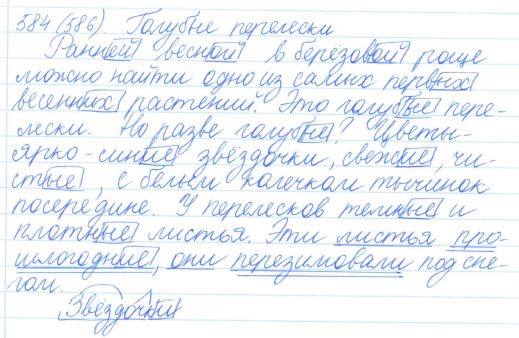 584 (586). Голубые перелески
Ранней весной в берёзовой роще
можно найти одно из самых первых
весенних растений. Это голубые пере-
лески. Но разве голубые? Цветы-
ярко-синие звёздочки, свежие, чи-
стые, с белым колечком тычинок
посередине. У перелесков темные и
плотные листья. Эти листья про-
шлогодние, они перезимовали под сне-
гом.
Звёздочки